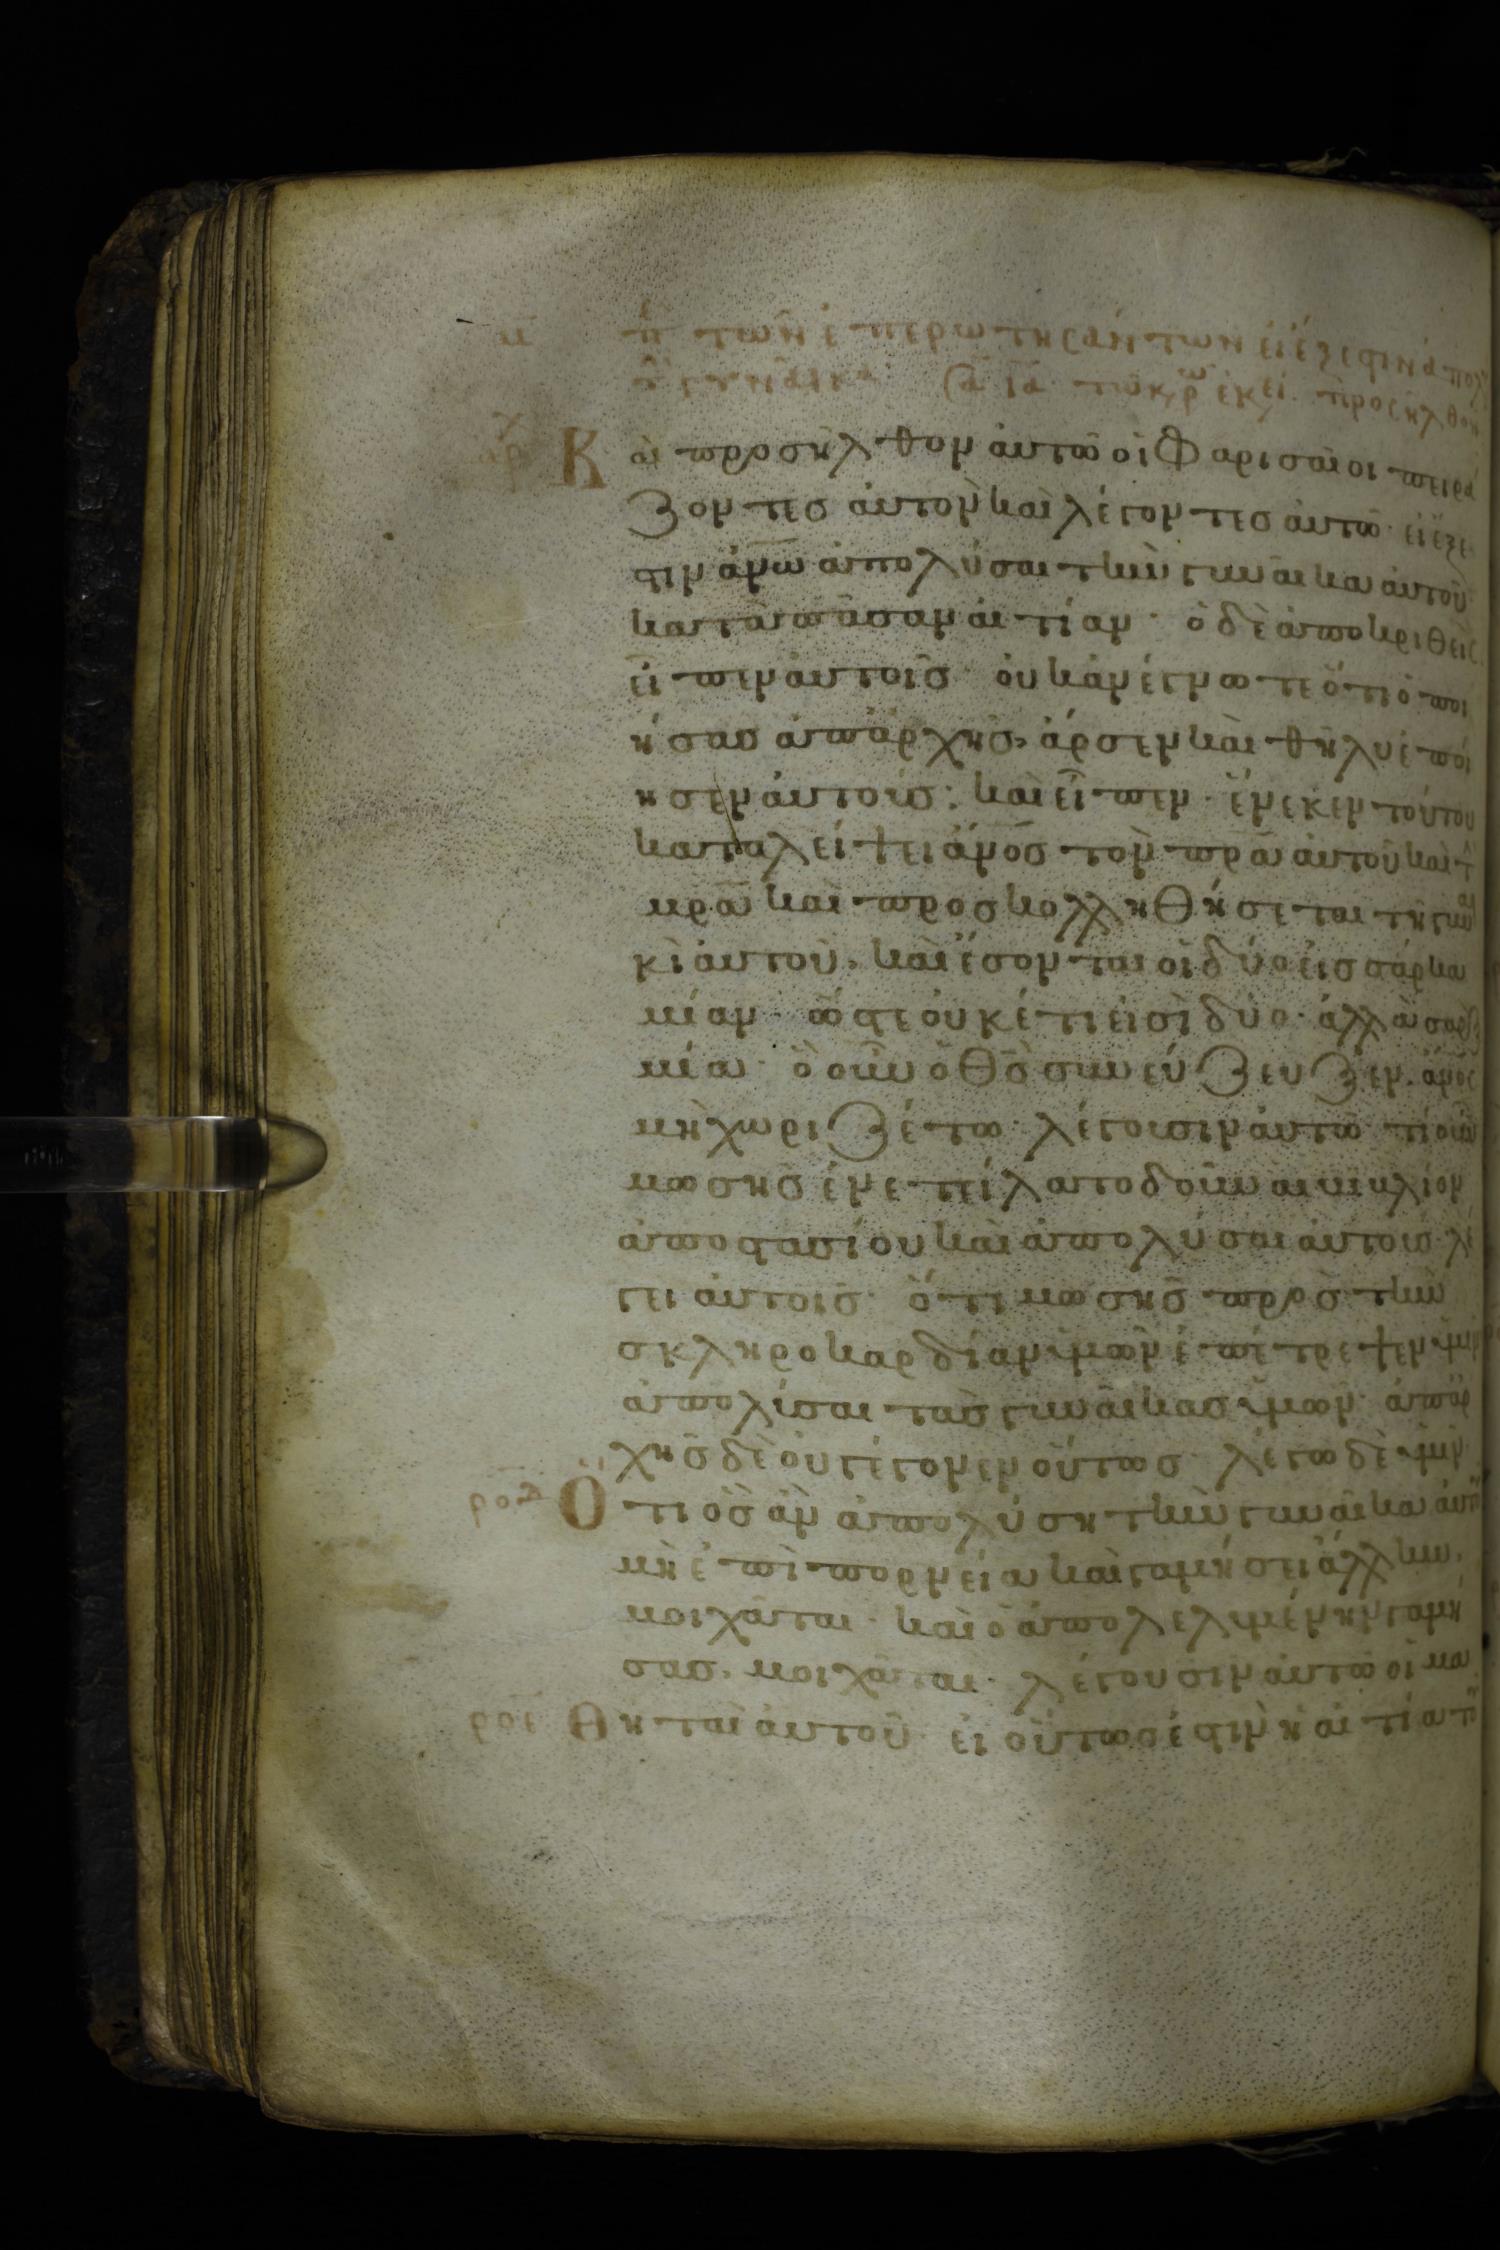 π̅ π̅ τῶν ἐπερωτησάντων εἰ ἔξεστιν ἀπολ
γυναῖκα
Καὶ προσῆλθον αὐτῶ οἱ Φαρισαῖοι πειρά
ζοντες αὐτὸν καὶ λέγοντες αὐτῶ· εἰ ἔξε
στιν ἀν̅ω ἀπολύσαι τὴν γυναῖκα αὐτοῦ
κατὰ πᾶσαν αἰτίαν· ὁ δὲ ἀποκριθεὶς
εἶπεν αὐτοῖς· οὐκ ἀνέγνωτε ὅτι ὁ ποι
ήσας ἀπαρχῆς, ἄρσεν καὶ θῆλυ ἐποί
ησεν αὐτούς; καὶ εἶπεν· ἕνεκεν τούτου
καταλείψει ἄνο̅ς τὸν πρ̅α αὐτοῦ καὶ τ
μρ̅α καὶ προσκολληθήσεται τῆ γυναι
κὶ αὐτοῦ, καὶ ἔσονται οἱ δύο εἰς σάρκα
μίαν· ὥστε οὐκέτι εἰσὶ δύο· ἀλλὰ σαρξ
μία· ὃ οὖν ὁ θ̅ς συνέυζευξεν, ἄνο̅ς
μὴ χωριζέτω· λέγουσιν αὐτῶ· τί οὖν
μωσῆς ἐνετείλατο δοῦναι βιβλίον
ἀποστασίου καὶ ἀπολύσαι αὐτοῖς· λέ
γει αὐτοῖς· ὅτι μωσῆς πρὸς τὴν
σκληροκαρδίαν ὑμῶν ἐπέτρεψεν ὑμῖν
ἀπολύσαι τὰς γυναῖκας ὑμῶν· ἀπαρ
χῆς δὲ οὐ γέγονεν οὕτως· λέγω δὲ ὑμῖν
ρ̅ο̅δ̅ Ὅτι ὃς ἂν ἀπολύση τὴν γυναῖκα αὐτοῦ
μὴ ἐπὶ πορνεία καὶ γαμήσει ἄλλην,
μοιχᾶται· καὶ ὁ ἀπολελυμένην γαμή
σας, μοιχᾶται· λέγουσιν αὐτῶ οἱ μα
ρ̅ο̅ε̅ Θηταὶ αὐτοῦ· εἰ οὕτως ἐστιν ἡ αἰτία τοῦ